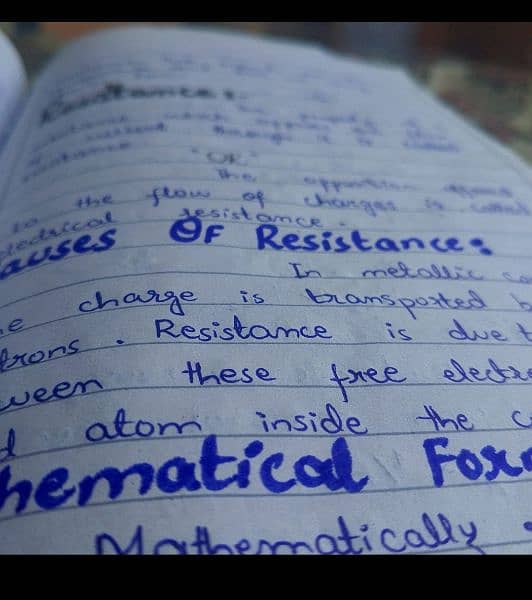 Resistance:
"OR"
The
to the flow of charges is
electrical resistance.
auses OF Resistance:
In metallic co
e charge is transported b
trons. Resistance is due t
ween these free electr
d atom inside the c
hematical For
Mathematically